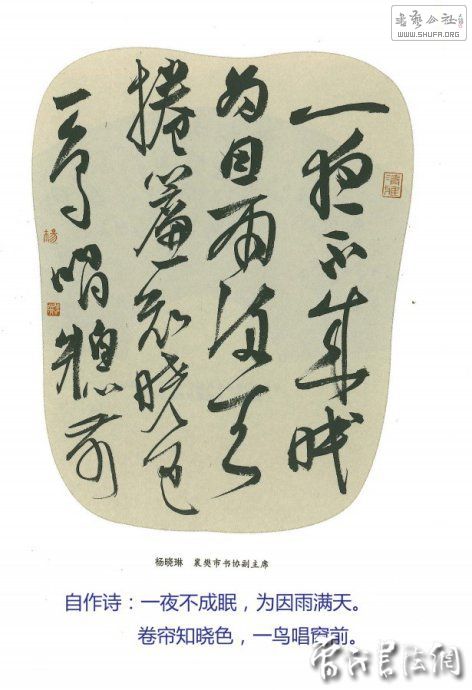 书艺公社
WWW.SHUFA.ORG
一夜不成眠
为因雨满天
捲簾知曉色
一鳥唱窻前
杨晓琳 襄樊市书协副主席
自作诗：一夜不成眠，为因雨满天。
卷帘知晓色，一鸟唱窗前。
書法網